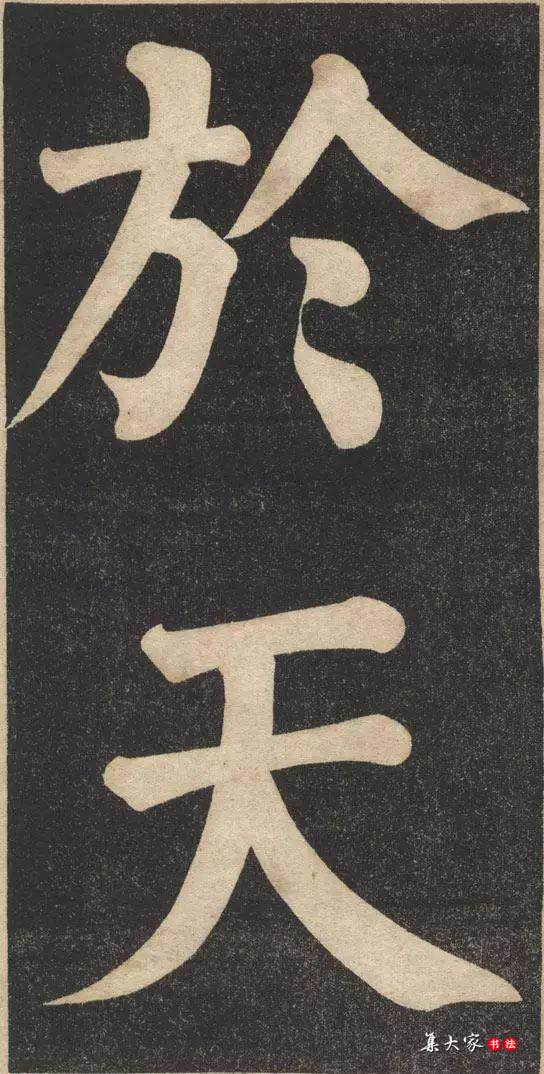 於
天
集大家书法